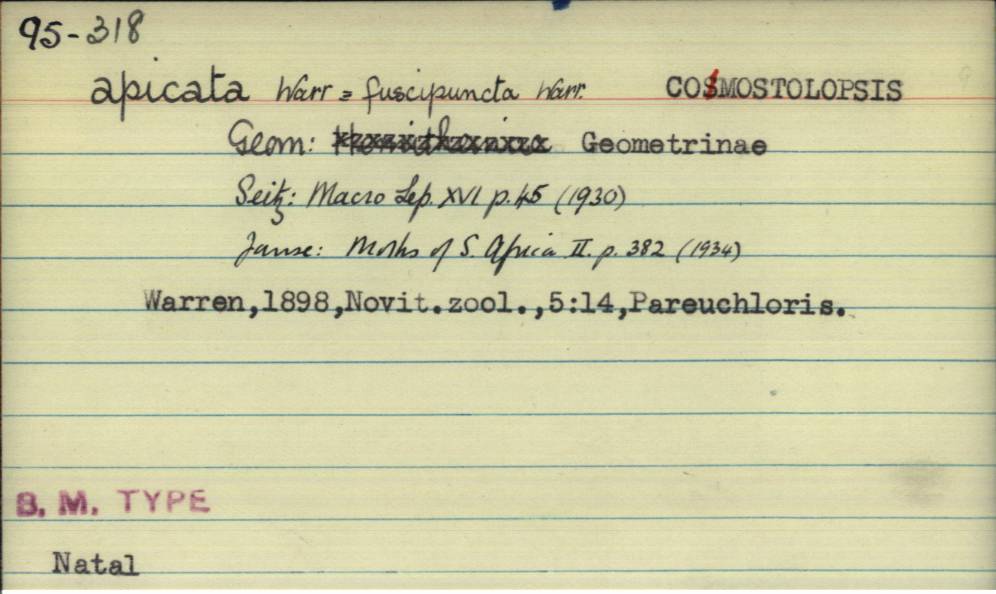 95-318
apicata Warr = fuscipuncta Warr. COSMOSTOLOPSIS
Geom: Geometrinae
Seitz: Macro Lep. XVI p. 45 (1930)
Janse: Moths of S. Africa II. p. 382 (1934)
Warren,1898,Novit.zool.,5:14,Pareuchloris.
B. M. TYPE
Natal